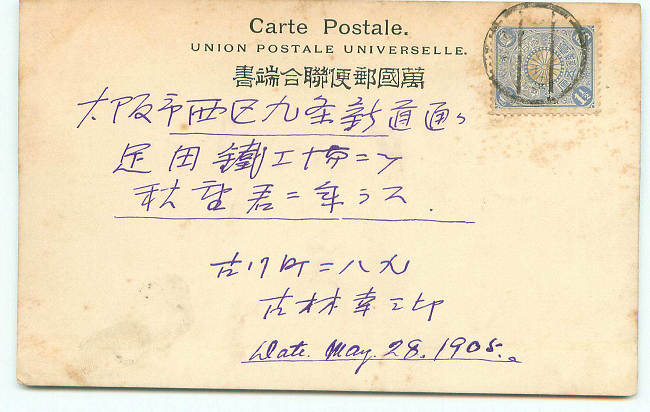 Carte Postale.
UNION POSTALE UNIVERSELLE.
書端合聯便郵國萬
大阪市西区九条新道通り
足田鐵工場ニテ
秋
古川町二八九
古林幸三郎
Date. May. 28. 1905.
1½